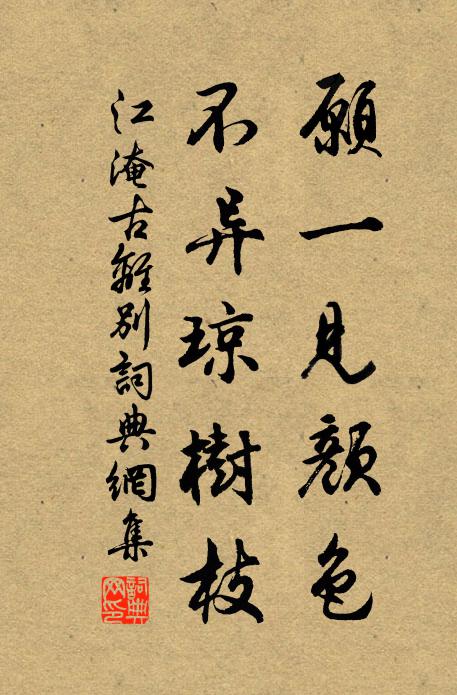 願一見顏色
不异琼樹枝
江淹古離別詞典網集
詞典
网印